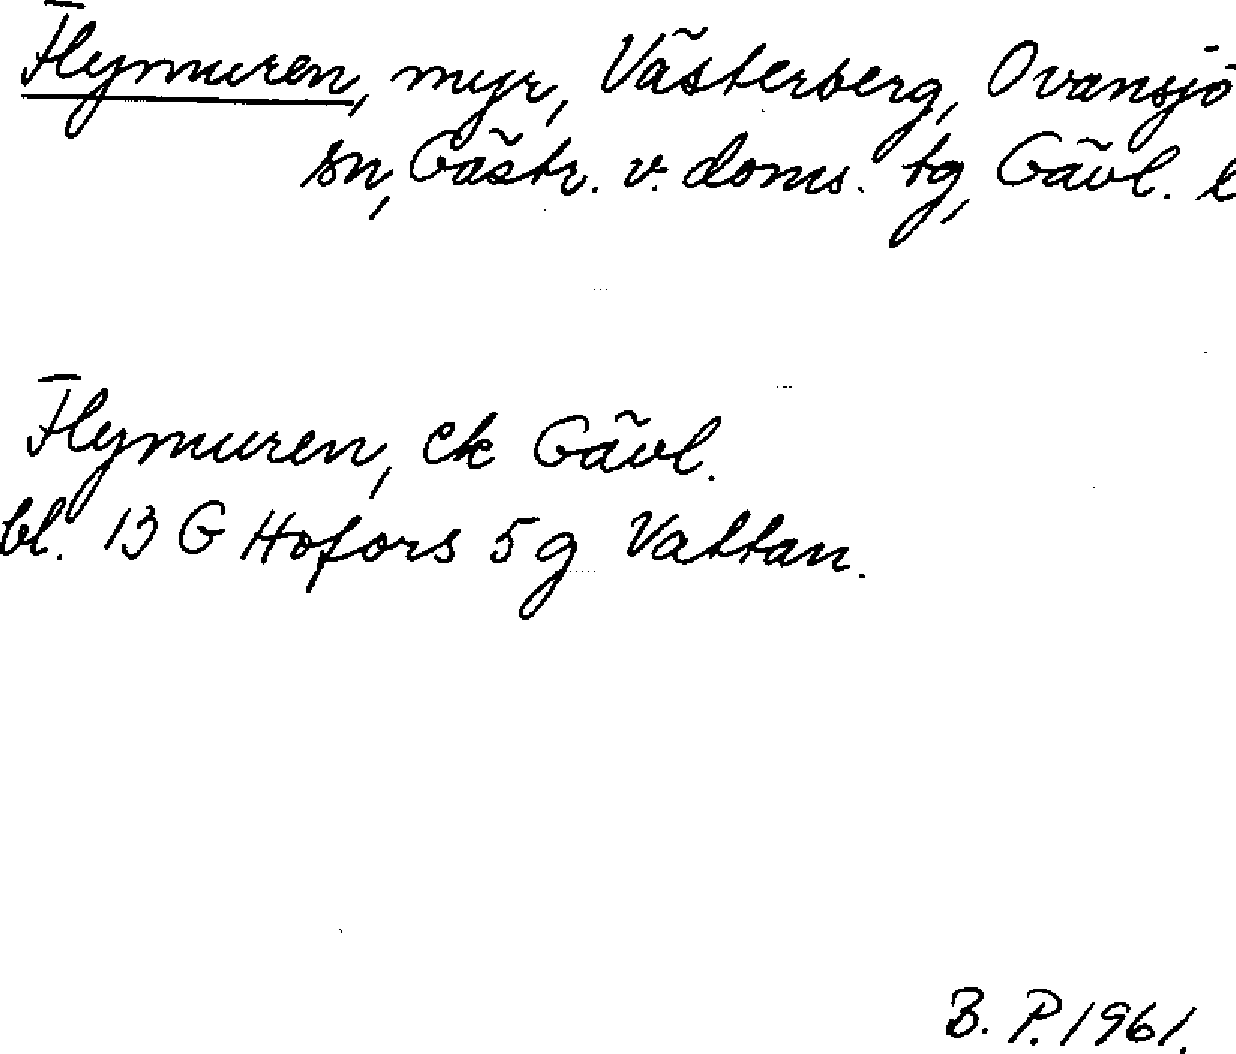 Flymuren, myr, Västerberg, Ovansjö
sn, Gästr. v. doms. tg, Gävl. l
Flymuren, ek Gävl.
bl. 13 G Hofors 5 g Vattan.
B. P. 1961.